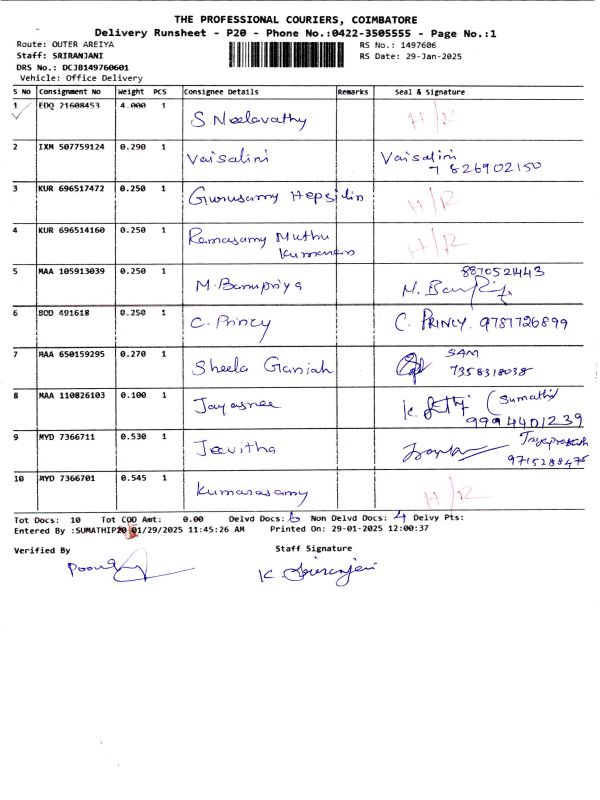 THE PROFESSIONAL COURIERS, COIMBATORE
Delivery Runsheet - P20 - Phone No.:0422-3505555 - Page No.:1
Route: OUTER AREIYA RS No.: 1497606
Staff: SRIRANJANI RS Date: 29-Jan-2025
DRS No.: DCJB149760601
Vehicle: Office Delivery
S No Consignment No Weight PCS Consignee Details Remarks Seal & Signature
1 EDQ 21608453 4.000 1 S Neelavathy H/R
2 IXM 507759124 0.290 1 Vaisalini Vaisalini
7826902150
3 KUR 696517472 0.250 1 Gurusamy Hepsi H/R
4 KUR 696514160 0.250 1 Ramasamy Muthu H/R
5 MAA 105913039 0.250 1 M. Banupriya 8870521443
6 BOD 491618 0.250 1 C. Princy C. PRINCY. 9787726899
7 MAA 650159295 0.270 1 Sheela Ganiah SAM
7358318038
8 MAA 110826103 0.100 1 Jayasree (Sumathi)
9994401239
9 MYD 7366711 0.530 1 Jeevitha
9715288475
10 MYD 7366701 0.545 1 Kumarasamy H/R
Tot Docs: 10 Tot COD Amt: 0.00 Delvd Docs: 6 Non Delvd Docs: 4 Delvy Pts:
Entered By :SUMATHIP20 01/29/2025 11:45:26 AM Printed On: 29-01-2025 12:00:37
Verified By Staff Signature